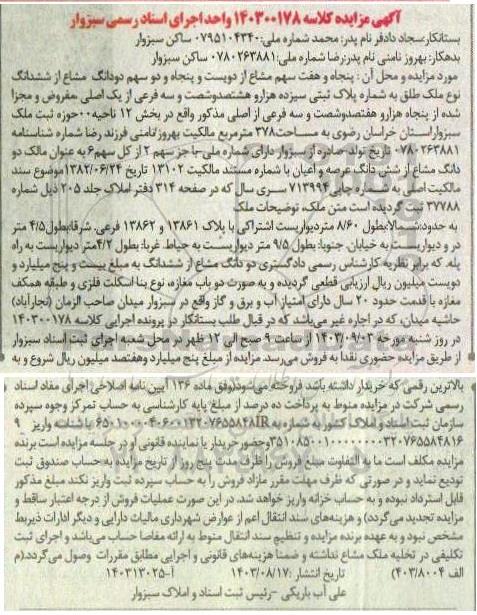 آگهی مزایده کلاسه ۱۴۰۳۰۰۱۷۸ واحد اجرای اسناد رسمی سبزوار
بستانکار:سجاد دادفر نام پدر: محمد شماره ملی:۰۷۹۵۱۰۴۳۴۰ ساکن سبزوار
بدهکار: بهروز نامنی نام پدر:رضا شماره ملی:۰۷۸۰۲۶۳۸۸۱ ساکن سبزوار
مورد مزایده و محل آن : پنجاه و هفت سهم مشاع از دویست و پنجاه و دو سهم دودانگ مشاع از ششدانگ
نوع ملک طلق به شماره پلاک ثبتی سیزده هزارو هشتصدوشصت و سه فرعی از یک اصلی ،مفروض و مجزا
شده از پنجاه هزارو هفتصدوشصت و سه فرعی از اصلی مذکور واقع در بخش ۱۲ ناحیه۰۰حوزه ثبت ملک
سبزواراستان خراسان رضوی به مساحت۳۷۸ مترمربع مالکیت بهروز/نامنی فرزند رضا شماره شناسنامه
تاریخ تولد-صادره از سبزوار دارای شماره ملی-با جز سهم ۲ از کل سهم۶ به عنوان مالک دو
دانگ مشاع از شش دانگ عرصه و اعیان با شماره مستند مالکیت ۱۳۱۰۲ تاریخ ۱۳۸۲/۰۶/۲۴موضوع سند
مالکیت اصلی به شماره چاپی۷۱۳۹۹۴ سری سال که در صفحه ۳۱۴ دفتر املاک جلد ۲۰۵ ذیل شماره
۳۷۷۸۸ ثبت گردیده است متن ملک، توضیحات ملک
به حدود:شمالا:بطول ۸/۶۰ متردیواریست اشتراکی با پلاک ۱۳۸۶۱ و ۱۳۸۶۲ فرعی. شرقا:بطول۴/۵ متر
در و دیواریست به خیابان. جنوبا: بطول ۹/۵ متر دیواریست به حیاط. غربا: بطول ۴/۲متر دیواریست به راه
پله، که برابر نظریه کارشناس رسمی دادگستری دو دانگ مشاع از ششدانگ به مبلغ بیست و پنج میلیارد و
دویست میلیون ریال ارزیابی قطعی گردیده و به صورت دو باب مغازه، نوع بنا اسکلت فلزی و طبقه همکف
مغازه با قدمت حدود ۲۰ سال دارای امتیاز آب و برق و گاز واقع در سبزوار میدان صاحب الزمان (نجارآباد)
حاشیه میدان، که در اجاره غیر می‌باشد که در قبال طلب بستانکار در پرونده اجرایی کلاسه ۱۴۰۳۰۰۱۷۸
در روز شنبه مورخه ۱۴۰۳/۰۹/۰۳ از ساعت ۹ صبح الی ۱۲ ظهر در محل شعبه اجرای ثبت اسناد سبزوار
از طریق مزایده حضوری نقدا به فروش می‌رسد. مزایده از مبلغ پنج میلیارد وهفتصد میلیون ریال شروع و به
بالاترین رقمی که خریدار داشته باشد فروخته می‌شود(وفق ماده ۱۳۶ آیین نامه اصلاحی اجرای مفاد اسناد
رسمی شرکت در مزایده منوط به پرداخت ده درصد از مبلغ پایه کارشناسی به حساب تمرکز وجوه سپرده
سازمان ثبت اسناد و املاک کشور به شماره به با شناسه واریز ۹
وحضور خریدار یا نماینده قانونی او در جلسه مزایده است برنده
مزایده مکلف است ما به التفاوت مبلغ فروش را ظرف مدت پنج روز از تاریخ مزایده به حساب صندوق ثبت
تودیع نماید و در صورتی که ظرف مهلت مقرر مازاد فروش را به حساب سپرده ثبت واریز نکند مبلغ مذکور
قابل استرداد نبوده و به حساب خزانه واریز خواهد شد. در این صورت عملیات فروش از درجه اعتبار ساقط و
مزایده تجدید می‌گردد) و هزینه‌های سند انتقال اعم از عوارض شهرداری مالیات دارایی و دیگر ادارات ذیربط
مشخص نبود و به عهده برنده مزایده و تنظیم سند انتقال منوط به ارائه مفاصا حساب می‌باشد و اجرای ثبت
تکلیفی در تخلیه ملک مشاع نداشته و ضمنا هزینه‌های قانونی و اجرایی مطابق مقررات وصول می‌گردد.(م
الف ۴۰۳/۸۰۰۴) تاریخ انتشار :۱۴۰۳/۰۸/۱۷ آ-۱۴۰۳۱۳۰۲۵
علی آب باریکی -رئیس ثبت اسناد و املاک سبزوار